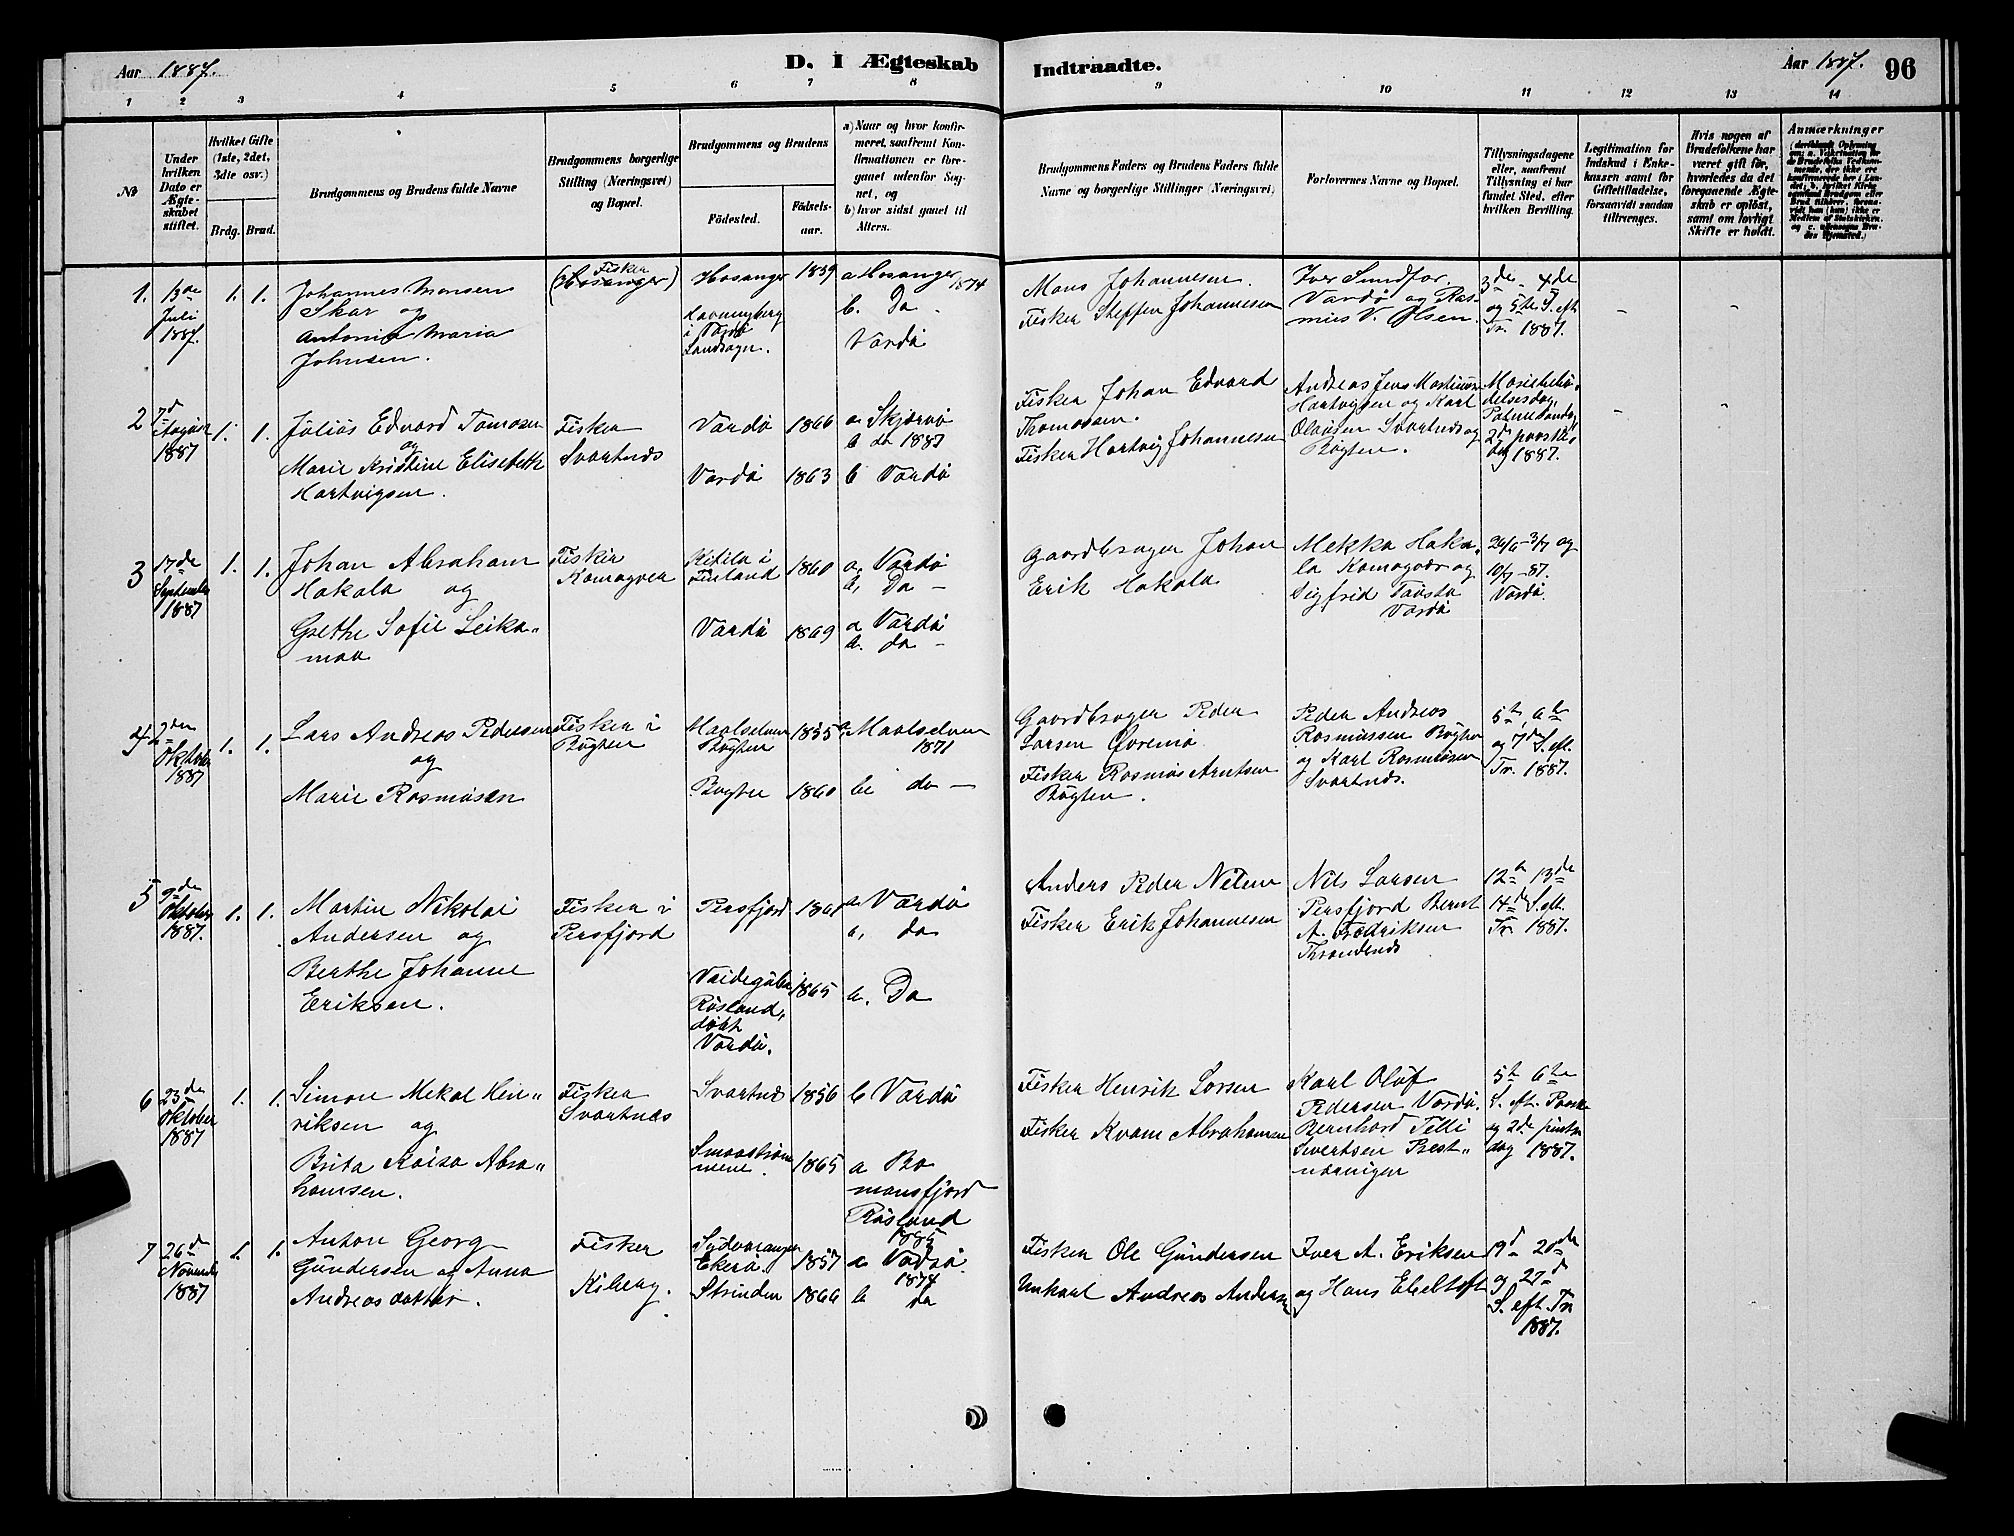 Aar 1887.
D. I Ægteskab
Indtraadte.
Aar 1887.
96
1 2 3 4 5 6 7 8 9 10 11 12 13 14
No
Under hvilken Dato er Ægteskabet stiftet.
Hvilket Gifte (1ste, 2det, 3die osv.)
Brdg. Brud.
Brudgommens og Brudens fulde Navne
Brudgommens borgerlige Stilling (Næringsvei) og Bopæl.
Brudgommens og Brudens
Födested.
Födselsaar.
a) Naar og hvor konfirmeret, saafremt Konfirmationen er foregaaet udenfor Sognet, og
b) hvor sidst gaaet til Alters.
Brudgommens Faders og Brudens Faders fulde Navne og borgerlige Stillinger (Næringsvei)
Forlovernes Navne og Bopæl.
Tillysningsdagene eller, saafremt Tillysning ei har fundet Sted, efter hvilken Bevilling.
Legitimation for Indskud i Enkekassen samt for Giftetilladelse, forsaavidt saadan tiltrænges.
Hvis nogen af Brudefolkene har været gift før, hvorledes da det foregaaende Ægteskab er oplöst, samt om lovligt Skifte er holdt.
Anmærkninger
1. 13de Juli 1887. 1. 1.
Johannes Monsen
Skar og
Antonia Maria
Johnsen.
Fisker
(Hosanger)
Hosanger 1839
Havningberg
i Vardö
Landsogn.
a Hosanger 1874
b. Do
Vardö
Mons Johannesen.
Fisker Steffen Johannesen
Iver Sundfor.
Vardö og Rasmus V. Olsen.
3de - 4de
og 5te S. eft
Tr. 1887.
2 7d August 1887 1. 1.
Julius Edvard Tomasen
og
Marie Kristine Elisabeth
Hartvigsen.
Fisker
Svartnes
Vardö 1866
Vardö 1863
a Skjærvö
b da 1887
b Vardö
Fisker Johan Edvard
Thomassen.
Fisker Hartvig Johannesen
Andreas Jens Martinus
Hartvigsen og Karl
Olausen Svartnes og
Bugten.
2d paaske
dag 1887.
3 17de September 1887 1. 1.
Johan Abraham
Hakala og
Grethe Sofie Leika„
maa
Fisker
Komagvær
Kitila i
Finland 1860
Vardö 1869
a, Vardö
b, Do -
a Vardö
b. do -
Gaardbruger Johan
Erik Hakala
Mekka Haka„
la Komagvær og
Sigfrid Tausta
Vardö
26/6 - 3/7 og
10/7 - 87.
Vardö.
4 2den Oktober 1887 1. 1.
Lars Andreas Pedersen
og
Marie Rasmusen
Fisker i
Bugten
Maalselven
Bugten 1855
Bugten 1860
a. Maalselven
1871
b. do -
Gaardbruger Peder
Larsen Øvremo
Fisker Rasmus Arntsen
Bugten.
Peder Andreas
Rasmussen Bugten
og Karl Rasmusen
Svartnes.
5te, 6te
og 7de S. eft.
Tr. 1887.
5 9de Oktober 1887. 1. 1.
Martin Nikolai
Andersen og
Berthe Johanne
Eriksen.
Fisker i
Persfjord
Persfjord 1861
Vaidegüba
Rusland,
döbt
Vardö. 1865
a. Vardö
b, do
b. Do
Anders Peder Nilsen
Fisker Erik Johannesen
Nils Larsen
Persfjord Bernt
A. Fredriksen
Throndenes
12te 13de
14de S. eft.
Tr. 1887.
6 23de Oktober 1887 1. 1.
Simon Mekal Hen„
riksen og
Brita Kaisa Abra„
hamsen.
Fisker
Svartnæs
Svartnes 1856
Smaaströmmene. 1865
b Vardö
a Bo
mansfjord
Rusland
1885
Fisker Henrik Larsen
Fisker Kvam Abrahamsen
Karl Oluf
Pedersen Vardö.
Bernhard Telli
Sivertsen Præst„
næringen
5te 6te
S. eft. Paaske
og 2de pintse
dag 1887.
7 26de November 1887 1. 1.
Anton Georg
Gundersen og Anna
Andreasdatter.
Fisker
Kiberg.
Sydvaranger
Ekerö 1857
Strinden 1866
a Vadsö
1874
b do
Fisker Ole Gundersen
Unkarl Andreas Andersen
Iver A. Eriksen
og Hans Ebeltoft
19de 20de
og 21de
S. eft. Tr.
1887.